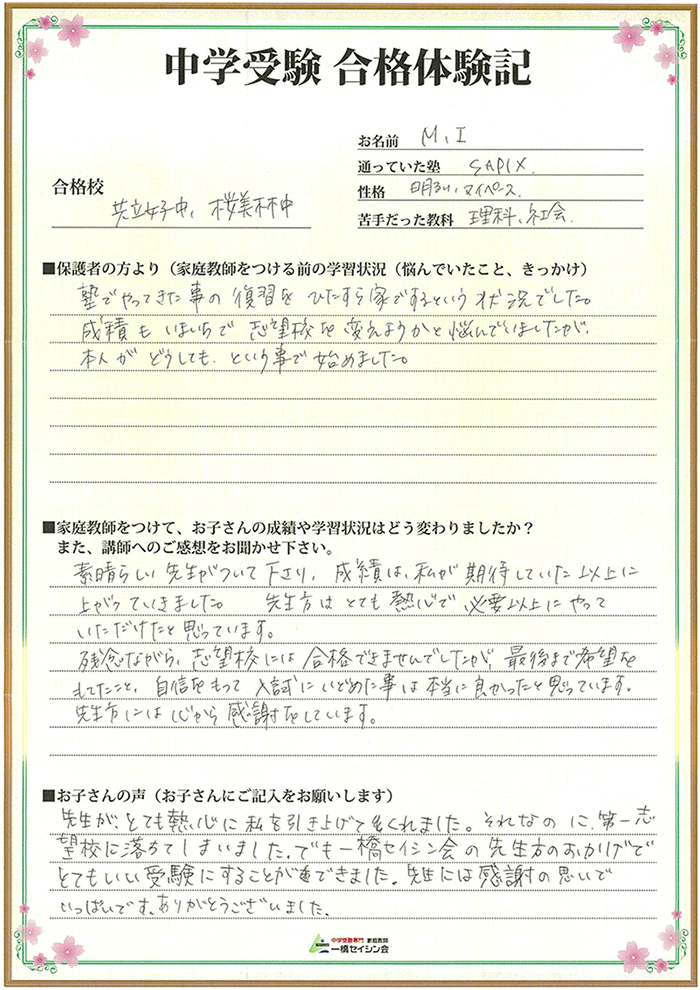 中学受験 合格体験記
お名前 M、I
通っていた塾 SAPIX.
合格校 共立女子中、桜美林中
性格 明るい、マイペース.
苦手だった教科 理科、社会.
■保護者の方より（家庭教師をつける前の学習状況（悩んでいたこと、きっかけ）
塾でやってきた事の復習をひたすら家でするという状況でした。
成績もいまいちで志望校を変えようかと悩んでいましたが、
本人がどうしても、という事で始めました。
■家庭教師をつけて、お子さんの成績や学習状況はどう変わりましたか？
また、講師へのご感想をお聞かせ下さい。
素晴らしい先生がついて下さり、成績は、私が期待していた以上に
上がっていきました。 先生方はとても熱心で必要以上にやって
いただけたと思っています。
残念ながら、志望校には合格できませんでしたが、最後まで希望を
もてたこと、自信をもって入試にいどめた事は本当に良かったと思っています。
先生方には心から感謝をしています。
■お子さんの声（お子さんにご記入をお願いします）
先生が、とても熱心に私を引き上げてくれました。それなのに、第一志
望校に落ちてしまいました。でも一橋セイシン会の先生方のおかげで
とてもいい受験にすることができました。先生には感謝の思いで
いっぱいです。ありがとうございました。
中学受験専門 家庭教師
一橋セイシン会